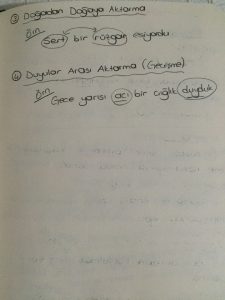 ③ Doğadan Doğaya Aktarma
Örn
Sert bir rüzgar esiyordu
④ Duyular Arası Aktarma (Geçişme)
Örn
Gece yarısı acı bir çığlık duyduk